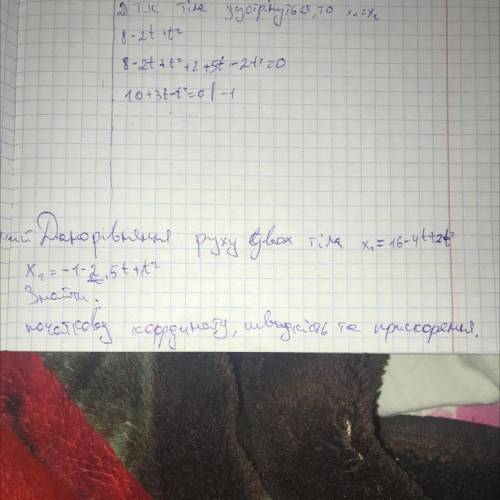 2) т.к тіла зустрінуться, то x₁=x₂
8-2t+t²
8-2t+t²+2+5t-2t²=0
10+3t-t²=0 | -1
Дано рівняння руху двох тіла x₁=16-4t+2t²
x₂=-1-2,5t+t²
Знайти:
початкову координату, швидкість та прискорення.